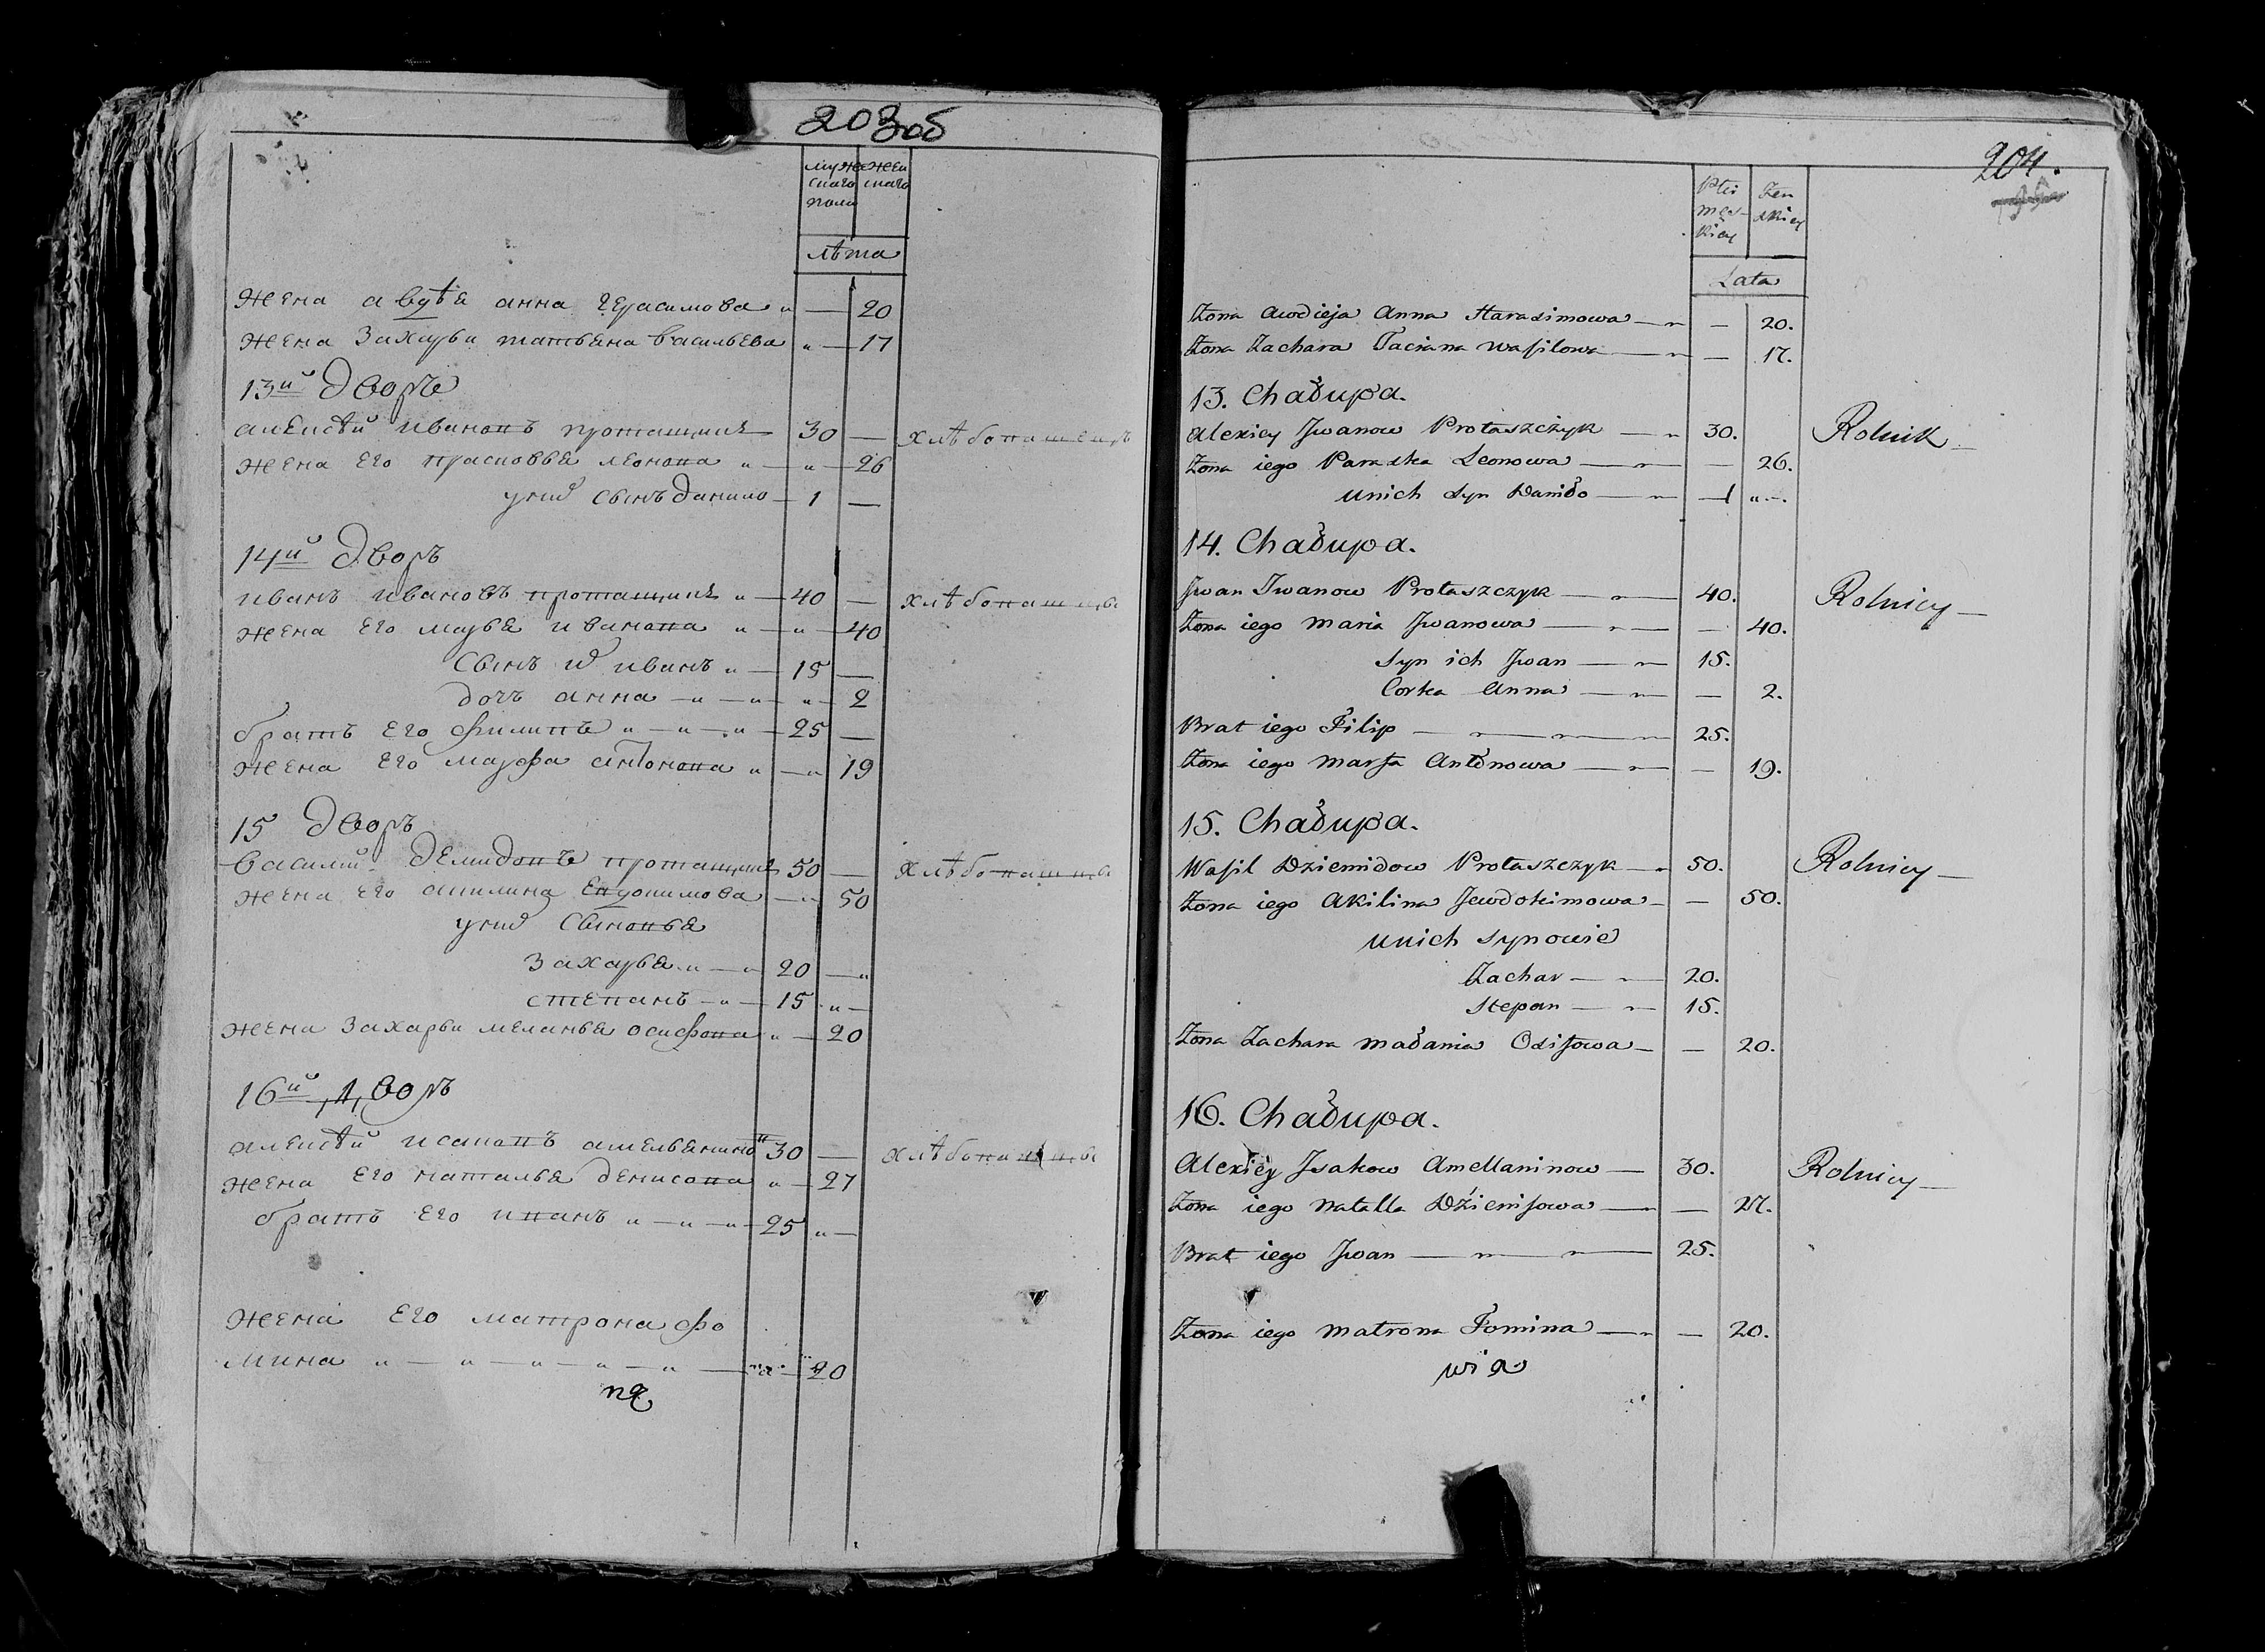 203об
муже
скаго
пола
жен
скаго
лѣта
жена авдѣя анна герасимова " — 20
жена захарьи татьяна васильева " — 17
13й дворъ
алексѣй ивановъ проташчикъ 30 — хлѣбопашецъ
жена его прасковья леонова " — " — 26
у них сынъ данило — 1 —
14й дворъ
иванъ ивановъ проташчикъ " — 40 — хлѣбопашцы
жена его марья иванова " — " — 40
сынъ их иванъ " — 15 —
дочъ анна — " — " — " — 2
братъ его филипъ " — " — " — 25 —
жена его марфа антонова " — " 19
15 дворъ
василий демидовъ проташчикъ 50 — хлѣбопашцы
жена его акилина евдокимова — " 50
у них сыновья
захарья " — " 20 — "
степанъ — " — 15 " —
жена захарьи меланья осифова " — 20
16й дворъ
алексѣй исаковъ амельянино 30 — хлѣбопашцы
жена его наталья денисова " — 27
братъ его иванъ " — " — " — 25 " —
жена его матрона фо
мина " — " — " — " — " — " — 20
204.
Płci
męs-
kiey
Żeń
skiey
Lata
Żona Awdieja Anna Harasimowa — " — — 20.
Żona Zachara Taciana Wasilowa — " — — 17.
13. Chałupa.
Alexiey Jwanow Protaszczyk — " 30. Rolnik —
Żona iego Paraska Leonowa — " — — 26.
unich syn Daniło — " — 1 " —.
14. Chałupa.
Jwan Jwanow Protaszczyk — " — 40. Rolnicy —
Żona iego Maria Jwanowa — " — — 40.
syn ich Jwan — " 15.
Corka Anna — " — — 2.
Brat iego Filip — " — " — " — 25.
Żona iego Marfa Antonowa — " — — 19.
15. Chałupa.
Wasil Dziemidow Protaszczyk — " 50. Rolnicy —
Żona iego Akilina Jewdokimowa — — 50.
unich synowie
Zachar — " 20.
Stepan — " 15.
Żona Zachara Małania Osifowa — — 20.
16. Chałupa.
Alexiey Jsakow Amellaninow — 30. Rolnicy —
Żona iego Natalla Dzienisowa — " — 27.
Brat iego Jwan — " — " — 25.
Żona iego Matrona Fomina — " — 20.